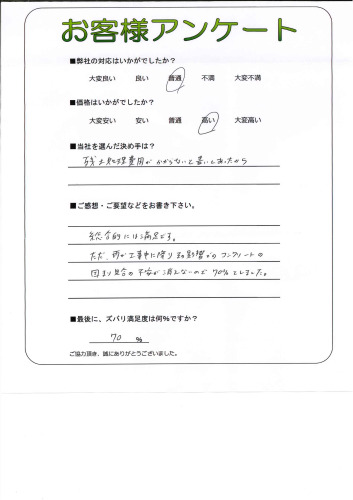 お客様アンケート
■弊社の対応はいかがでしたか？
大変良い 良い 普通 不満 大変不満
■価格はいかがでしたか？
大変安い 安い 普通 高い 大変高い
■当社を選んだ決め手は？
残土処理費用がかからないと書いてあったから
■ご感想・ご要望などをお書き下さい。
総合的には満足です。
ただ、雨が工事中に降り影響からコンクリートの
固まり具合の不安が消えないので70%としました。
■最後に、ズバリ満足度は何%ですか？
70 %
ご協力頂き、誠にありがとうございました。